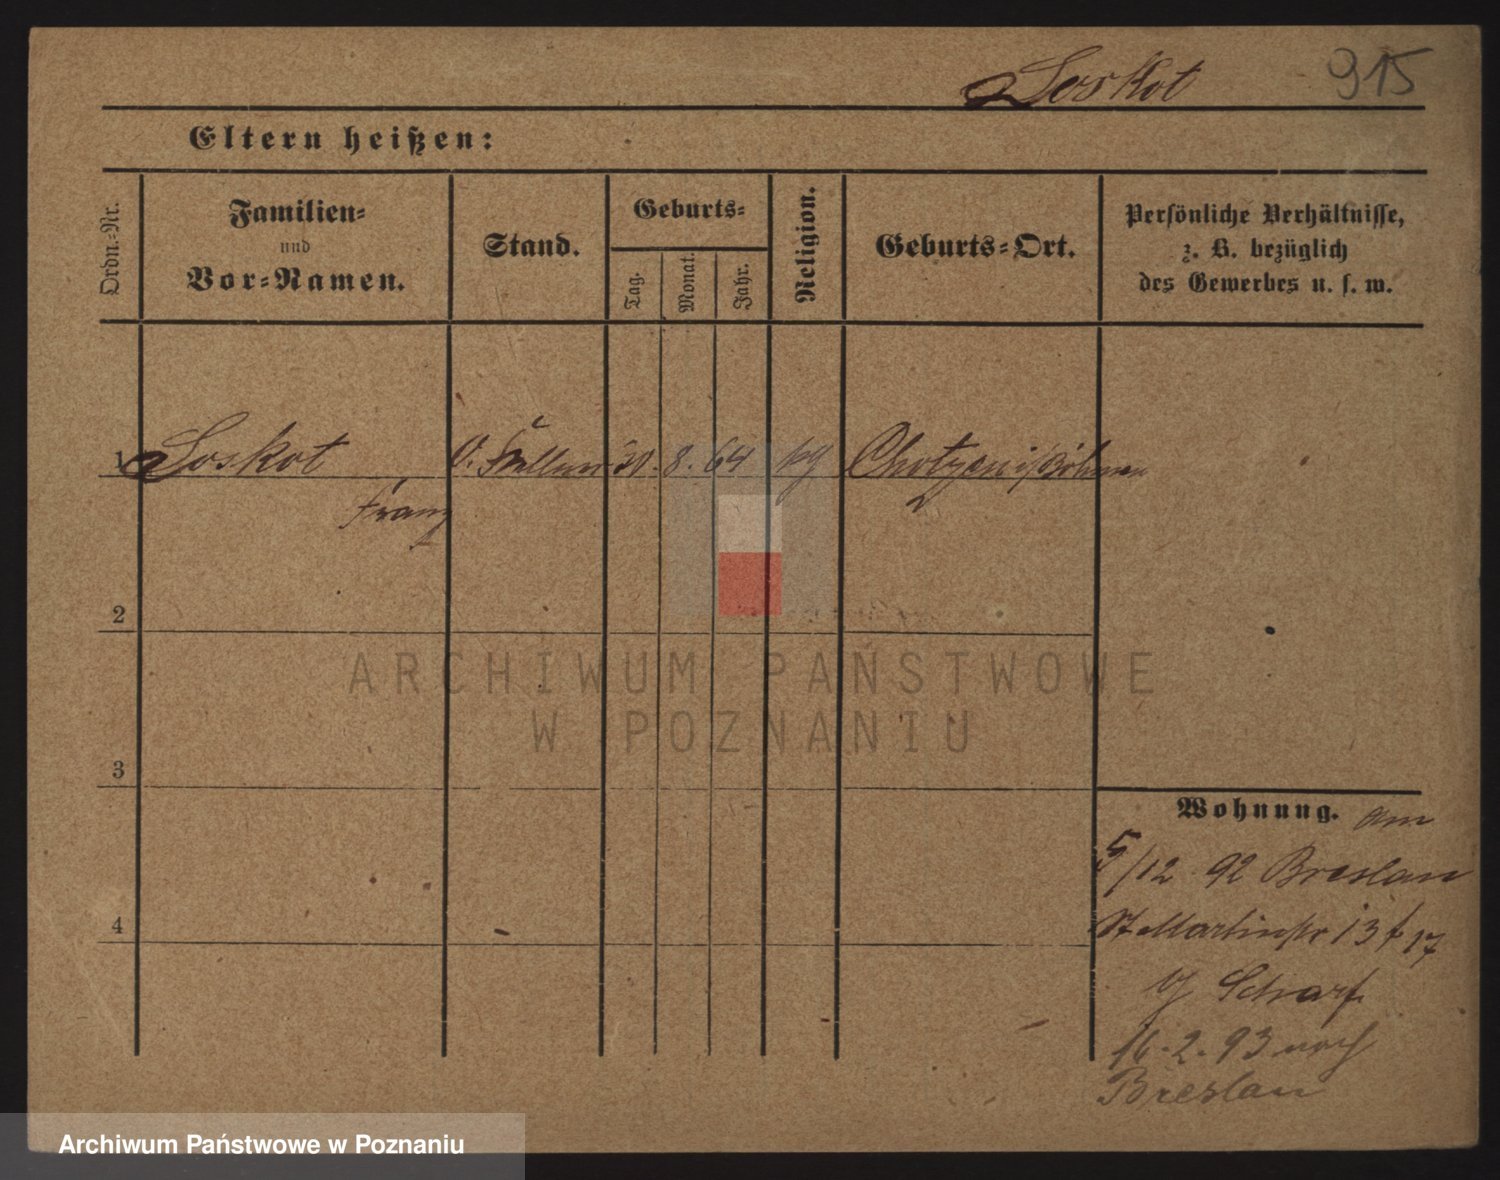 Soskot 915
Eltern heißen:
Ordn.-Nr.
Familien-
und
Vor-Namen.
Stand.
Geburts-
Tag.
Monat.
Jahr.
Religion.
Geburts-Ort.
Persönliche Verhältnisse,
z. B. bezüglich
des Gewerbes u. s. w.
1 Soskot 8. 64 i/Böhmen
Franz
2
3
4
Wohnung. am
5/12 92 Breslau
St Martinstr 13 17
Scharf
16.2.93 nach
Breslau
ARCHIWUM PAŃSTWOWE
W POZNANIU
Archiwum Państwowe w Poznaniu